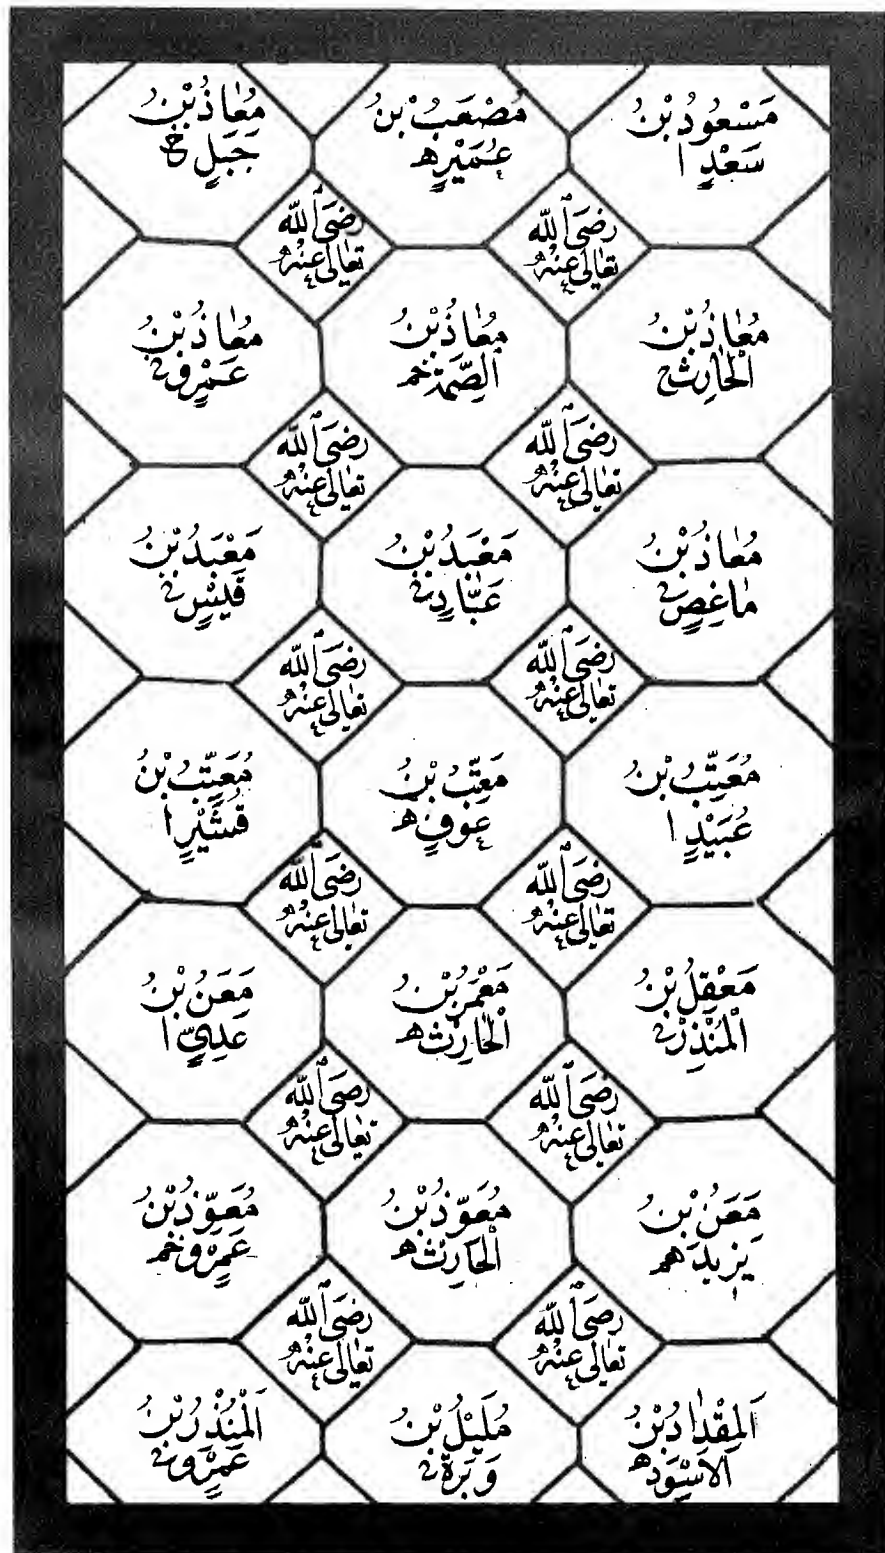 مَسْعُودُ بْنُ
سَعْدٍ ا
مُصْعَبُ بْنُ
عُمَيْرٍ ه
مُعَاذُ بْنُ
جَبَلٍ خ
رَضِىَ اللّٰه
تعالىٰ عنه
رَضِىَ اللّٰه
تعالىٰ عنه
مُعَاذُ بْنُ
الْحَارِثِ خ
مُعَاذُ بْنُ
الصِّمَّةِ خم
مُعَاذُ بْنُ
عَمْرٍو
رَضِىَ اللّٰه
تعالىٰ عنه
رَضِىَ اللّٰه
تعالىٰ عنه
مُعَاذُ بْنُ
مَاعِصٍ
مَعْبَدُ بْنُ
عَبَّادٍ
مَعْبَدُ بْنُ
قَيْسٍ
رَضِىَ اللّٰه
تعالىٰ عنه
رَضِىَ اللّٰه
تعالىٰ عنه
مُعَتِّبُ بْنُ
عُبَيْدٍ ا
مُعَتِّبُ بْنُ
عَوْفٍ ه
مُعَتِّبُ بْنُ
قُشَيْرٍ ا
رَضِىَ اللّٰه
تعالىٰ عنه
رَضِىَ اللّٰه
تعالىٰ عنه
مَعْقِلُ بْنُ
الْمُنْذِرِ
مَعْمَرُ بْنُ
الْحَارِثِ ه
مَعَنُ بْنُ
عَدِيٍّ ا
رَضِىَ اللّٰه
تعالىٰ عنه
رَضِىَ اللّٰه
تعالىٰ عنه
مَعَنُ بْنُ
يَزِيدَ هم
مُعَوِّذُ بْنُ
الْحَارِثِ ه
مُعَوِّذُ بْنُ
عَمْرٍو خم
رَضِىَ اللّٰه
تعالىٰ عنه
رَضِىَ اللّٰه
تعالىٰ عنه
اَلْمِقْدَادُ بْنُ
الْاَسْوَدِ ه
مُلَيْلُ بْنُ
وَبَرَةَ
اَلْمُنْذِرُ بْنُ
عَمْرٍو